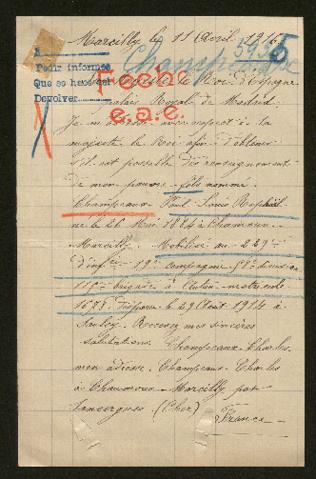 Marcilly le 11 Avril 1916
A
Pedir informes
Que se hace así
Devolver
Champeaux
Fecha
e.a.e.
le Roi d'Espagne
Palais Royal de Madrid
Je m'adresse avec respect à Sa
majesté le Roi afin d'obtenir
s'il est possible des renseignements
de mon pauvre fils nommé
Champeaux Paul Louis
né le 26 Mai 1884 à Chaumoux
Marcilly. Mobilisé au 229e
d'infrie 19e compagnie 58e division
115e brigade à matricule
disparu le 29 Août 1914 à
Recevez mes sincères
salutations. Champeaux Charles
mon adresse. Champeaux Charles
à Chaumoux-Marcilly par
Sancergues (Cher)
France